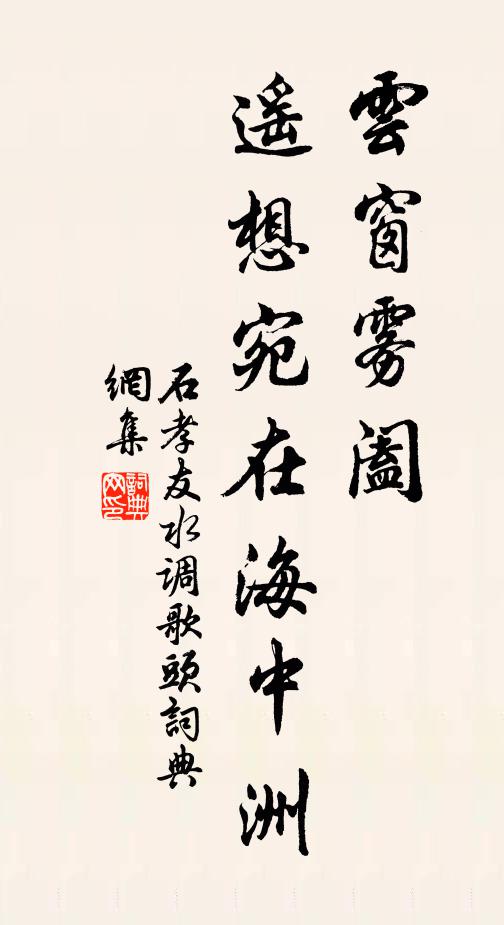 雲窗雾阖
遥想宛在海中洲
石孝友水调歌頭詞典
網集
詞典
网印